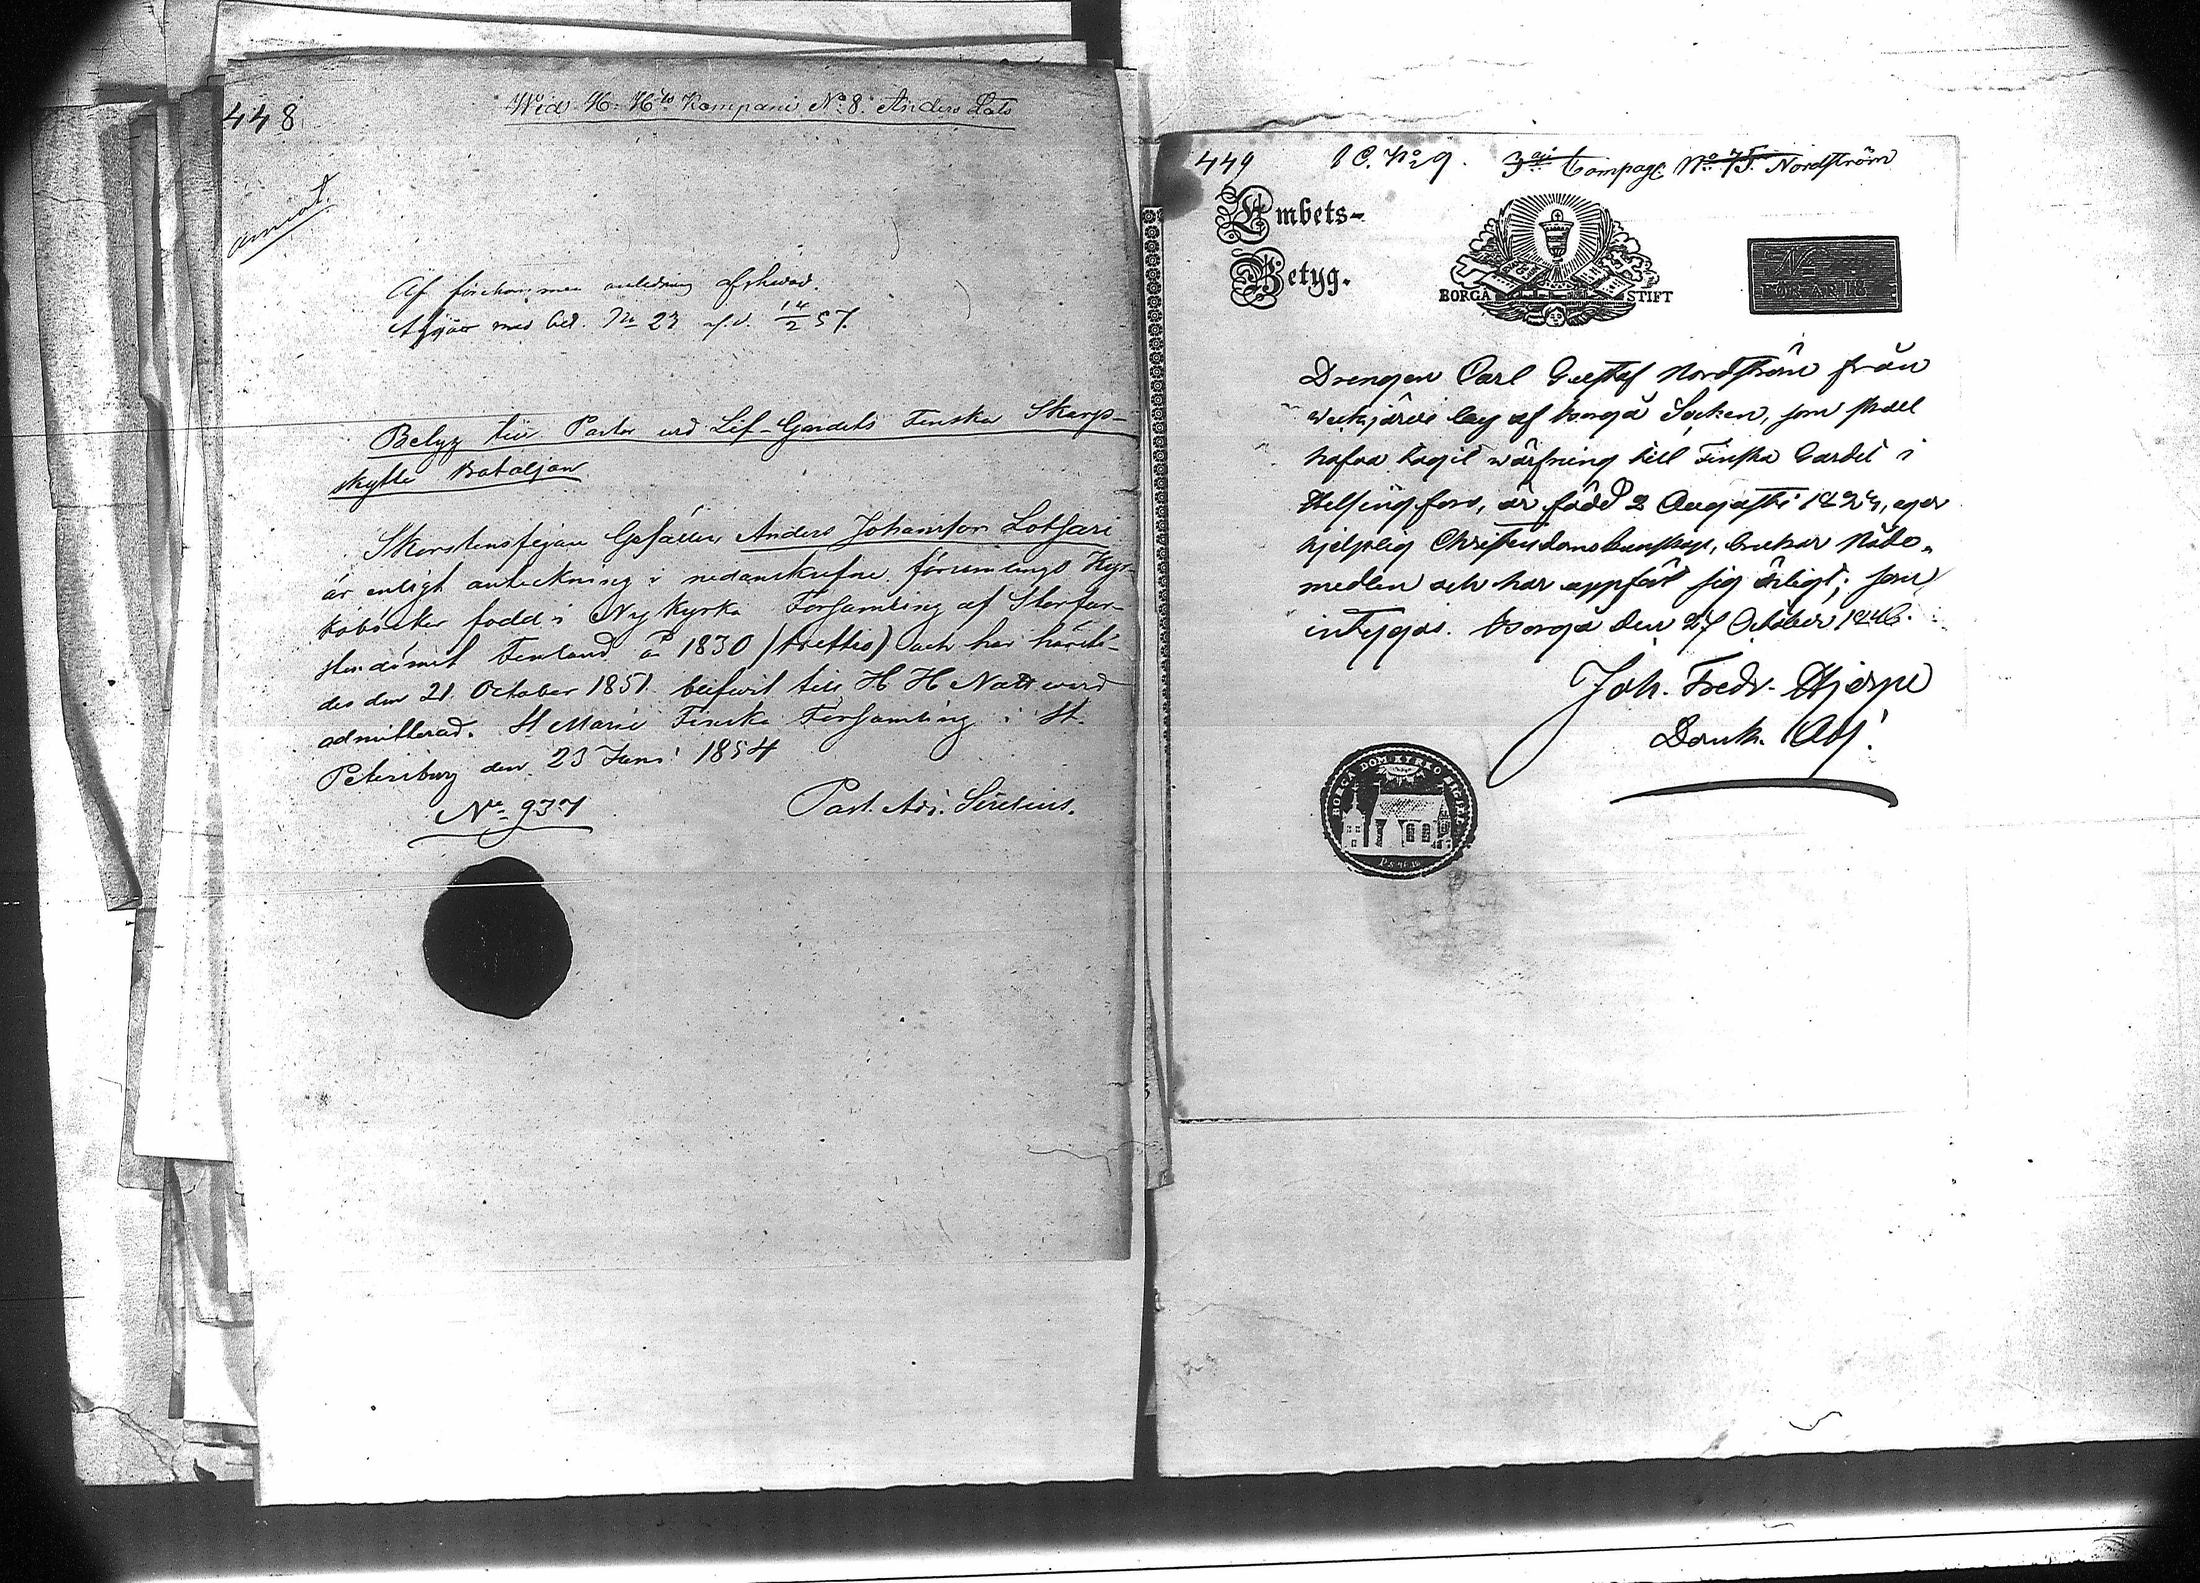 448
Wid H. Hts Kompani No 8. Anders Lats
Af förekommen anledning afskred.
Afgår med bet. No 23 af d. 14/2 57.
Betyg till Pastor vid Lif-Gardets Finska Skarp-
skytte Bataljon
Skorstensfejare Gesällen Anders Johansson Lotsari
är enligt anteckning i nedanskrefne församlings Kyr-
koböcker född i Nykyrka Församling af Storfur-
stendömit Finland år 1830 (trettio) och har härstä-
des den 21 October 1851 blifwit till H H Nattward
admitterad. St Marie Finska Församling i St.
Petersburg den 23 Juni 1854
No 937
Past. Adj. Sirelius.
449
1 C. No 9. 3dje Compagt No 75. Nordström
Embets-
Betyg.
BORGÅ STIFT
No
FÖR ÅR 18
Drengen Carl Gustaf Nordström från
by af Borgå Socken, som skall
hafva tagit wärfning till Finska Gardet i
Helsingfors, är född 2 Augusti, eger
hjelplig Christendomskunskap, brukar Nåde-
medlen och har uppfört sig ärligt; som
intygas. Borgå den 27 October 1846.
Joh. Fredr. Hjerpe
Domk. Adj.
BORGÅ DOM KYRKO SIGILL